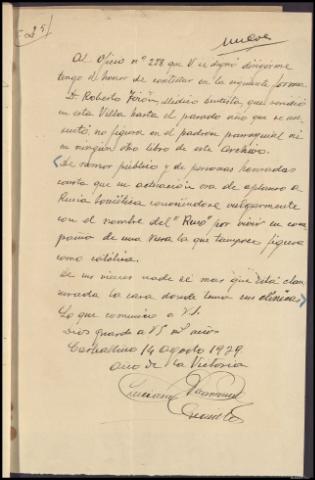 nueve
Al Oficio nº 228 que V se dignó dirigirme
tengo el honor de contestar en la siguiente forma
D. Roberto Médico dentista, que residió
en esta Villa hasta el pasado año que se
no figura en el padrón parroquial ni
en ningún otro libro de este archivo.
De rumor público y de personas honradas
consta que su actuación era de aplauso a
Rusia Sovietica conociéndose vulgarmente
con el nombre del "Ruso" por vivir en com
pañía de una rusa la que tampoco figura
como católica.
De sus bienes nada sé mas que está clau
surada la casa donde tenía sus clínicas
Lo que comunico a V.S.
Dios guarde a VS mˢ años
Carballino 14 agosto 1939
Año de la Victoria